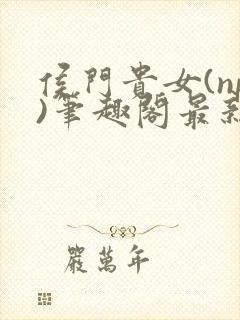 侯門貴女(np
)筆趣閣最新
嚴萬年